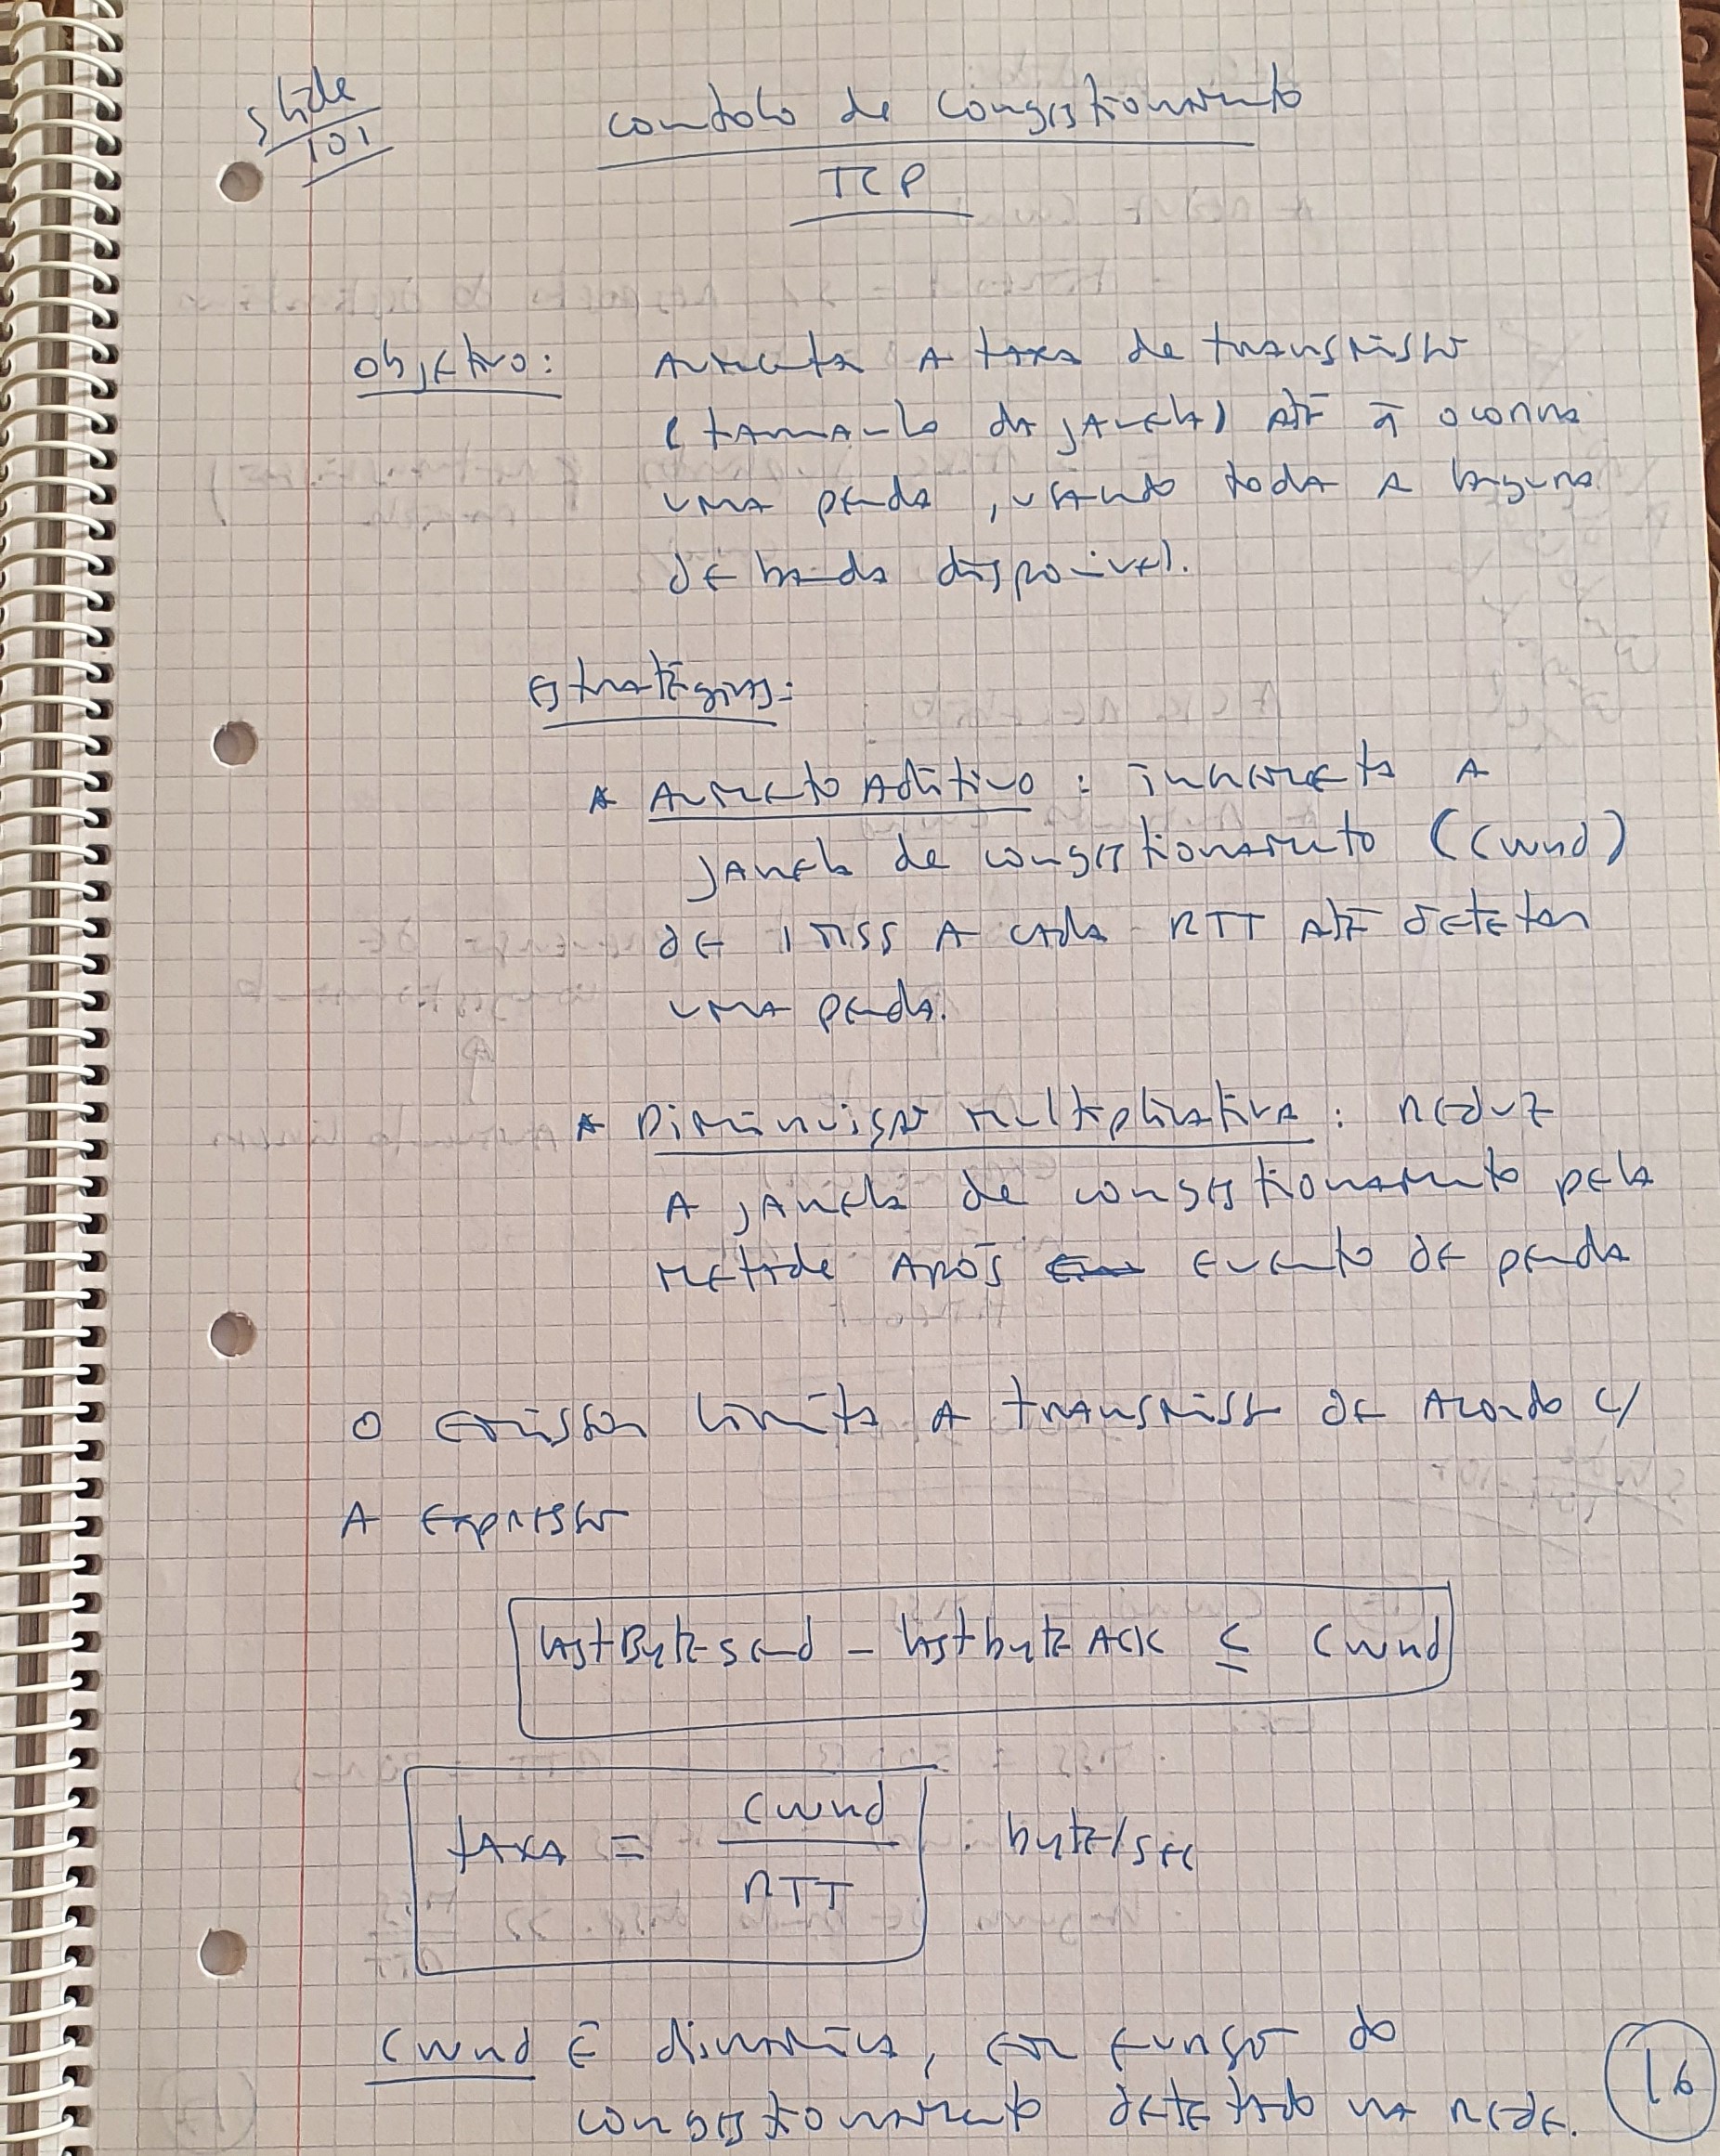 slide
101
controlo de congestionamento
TCP
objetivo: Aumenta A taxa de transmissão
(tamanho da janela) até à ocorrer
uma perda, usando toda a largura
de banda disponivel.
estratégias:
* Aumento Aditivo : incrementa A
janela de congestionamento (cwnd)
de 1 MSS A cada RTT até detetar
uma perda.
* Diminuição multiplicativa : reduz
A janela de congestionamento pela
metade Após evento de perda
O emissor limita A transmissão de Acordo c/
A expressão
LastByteSend - LastbyteACK ≤ cwnd
taxa = cwnd / RTT . byte/sec
cwnd é dinamica, em função do
congestionamento detetado na rede.
16